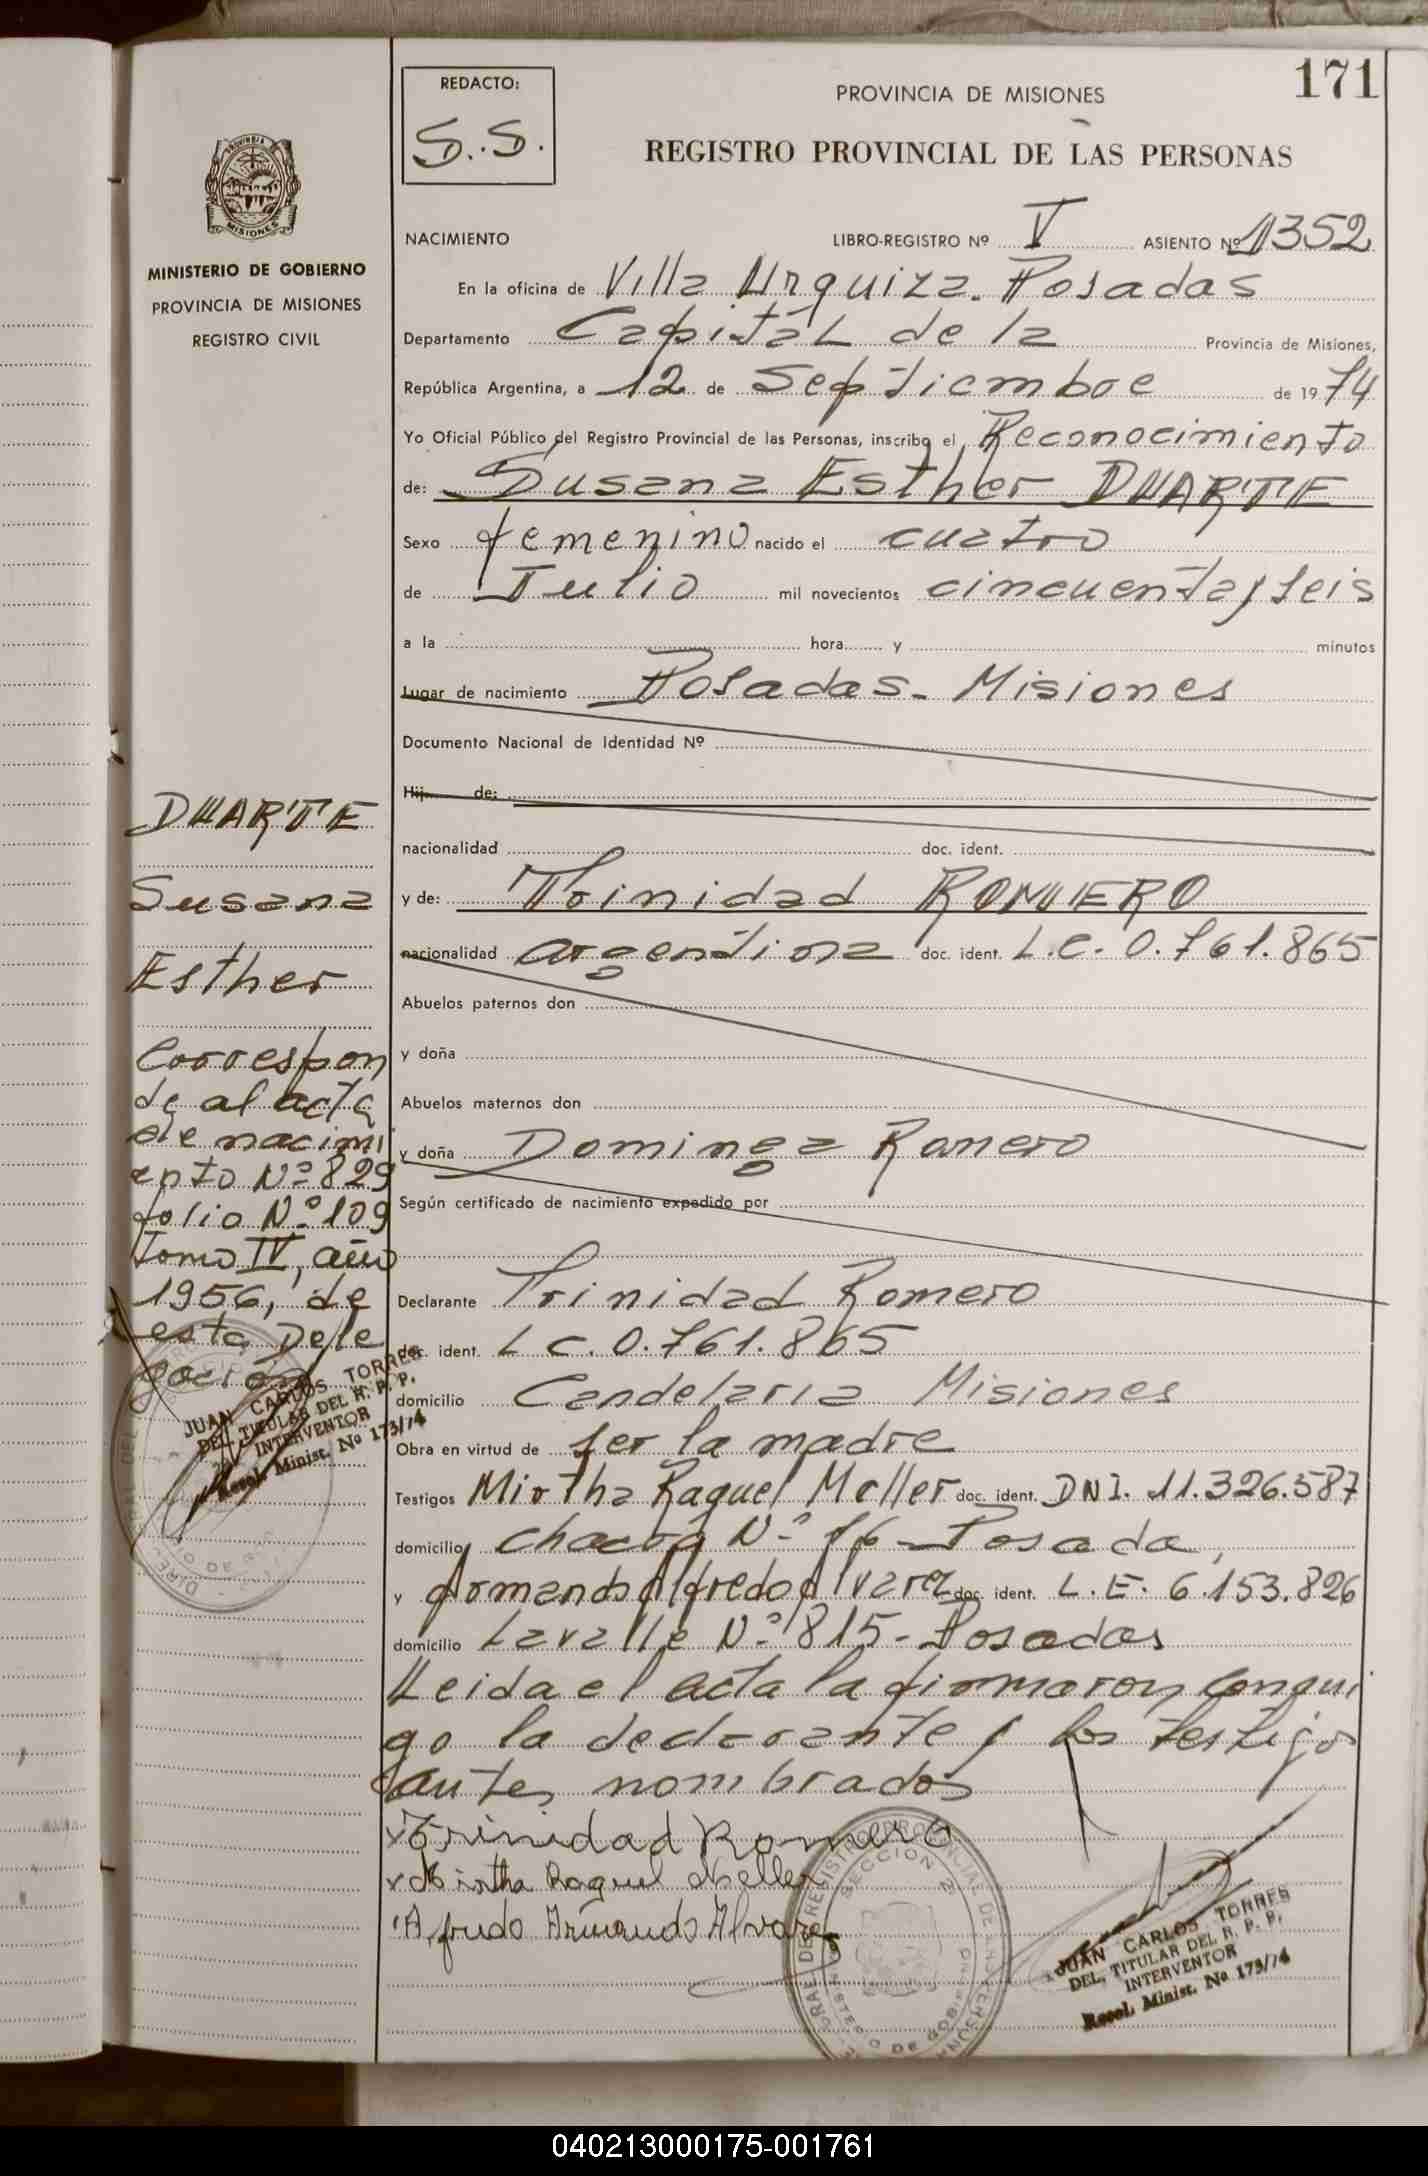 171
REDACTO:
S.S.
PROVINCIA DE MISIONES
REGISTRO PROVINCIAL DE LAS PERSONAS
PROVINCIA DE
MISIONES
MINISTERIO DE GOBIERNO
PROVINCIA DE MISIONES
REGISTRO CIVIL
NACIMIENTO LIBRO-REGISTRO Nº V ASIENTO Nº 1352
En la oficina de Villa Urquiza. Posadas
Departamento Capital de la Provincia de Misiones,
República Argentina, a 12 de Septiembre de 1974
Yo Oficial Público del Registro Provincial de las Personas, inscribo el Reconocimiento
de: Susana Esther DUARTE
Sexo femenino nacido el cuatro
de Julio mil novecientos cincuenta y seis
a la hora y minutos
Lugar de nacimiento Posadas - Misiones
Documento Nacional de Identidad Nº
Hij de:
nacionalidad doc. ident.
y de: Trinidad ROMERO
nacionalidad argentina doc. ident. L.C. 0.761.865
Abuelos paternos don
y doña
Abuelos maternos don
y doña Dominga Romero
Según certificado de nacimiento expedido por
Declarante Trinidad Romero
doc. ident. L C. 0.761.865
domicilio Candelaria Misiones
Obra en virtud de ser la madre
Testigos Mirtha Raquel Meller doc. ident. DNI. 11.326.587
domicilio chacra Nº 76 Posada,
y Armando Alfredo Alvarez doc. ident. L.E. 6.153.826
domicilio Lavalle Nº 815 - Posadas
Leida el acta la firmaron conmi
go la declarante y los testigos
antes nombrados
Trinidad Romero
Mirtha Raquel Meller
Alfredo Armando Alvarez
DUARTE
Susana
Esther
Correspon
de al acta
de nacimi
ento Nº 829
folio Nº 109
tomo IV, año
1956, de
esta Dele
gación
JUAN CARLOS TORRES
DEL. TITULAR DEL R. P. P.
INTERVENTOR
Resol. Minist. No 173/74
SECCION 2ª
JUAN CARLOS TORRES
DEL. TITULAR DEL R. P. P.
INTERVENTOR
Resol. Minist. No 173/74
040213000175-001761